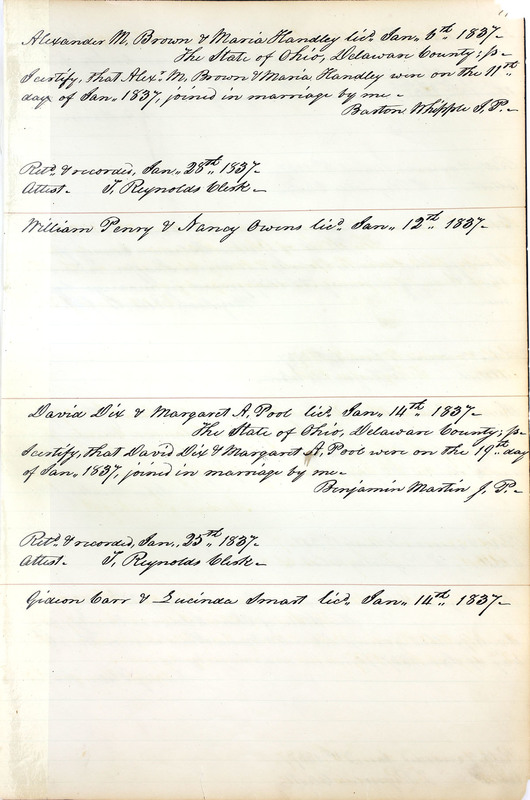 Alexander M. Brown & Maria Handley lic'd Jan. 6th 1837-
The State of Ohio, Delaware County; ss-
I certify, that Alex'r M. Brown & Maria Handley were on the 11th
day of Jan. 1837, joined in marriage by me-
Barton Whipple J. P.-
Ret'd & recorded, Jan. 28th 1837-
Attest- T, Reynolds Clerk-
William Penry & Nancy Owens lic'd Jan. 12th 1837-
David Dix & Margaret A. Pool lic'd Jan. 14th 1837-
The State of Ohio, Delaware County; ss-
I certify, that David Dix & Margaret A. Pool were on the 19th day
of Jan. 1837, joined in marriage by me-
Benjamin Martin J. P.-
Ret'd & recorded, Jan. 25th 1837-
Attest- T, Reynolds Clerk-
Gideon Carr & Lucinda Smart lic'd Jan. 14th 1837-